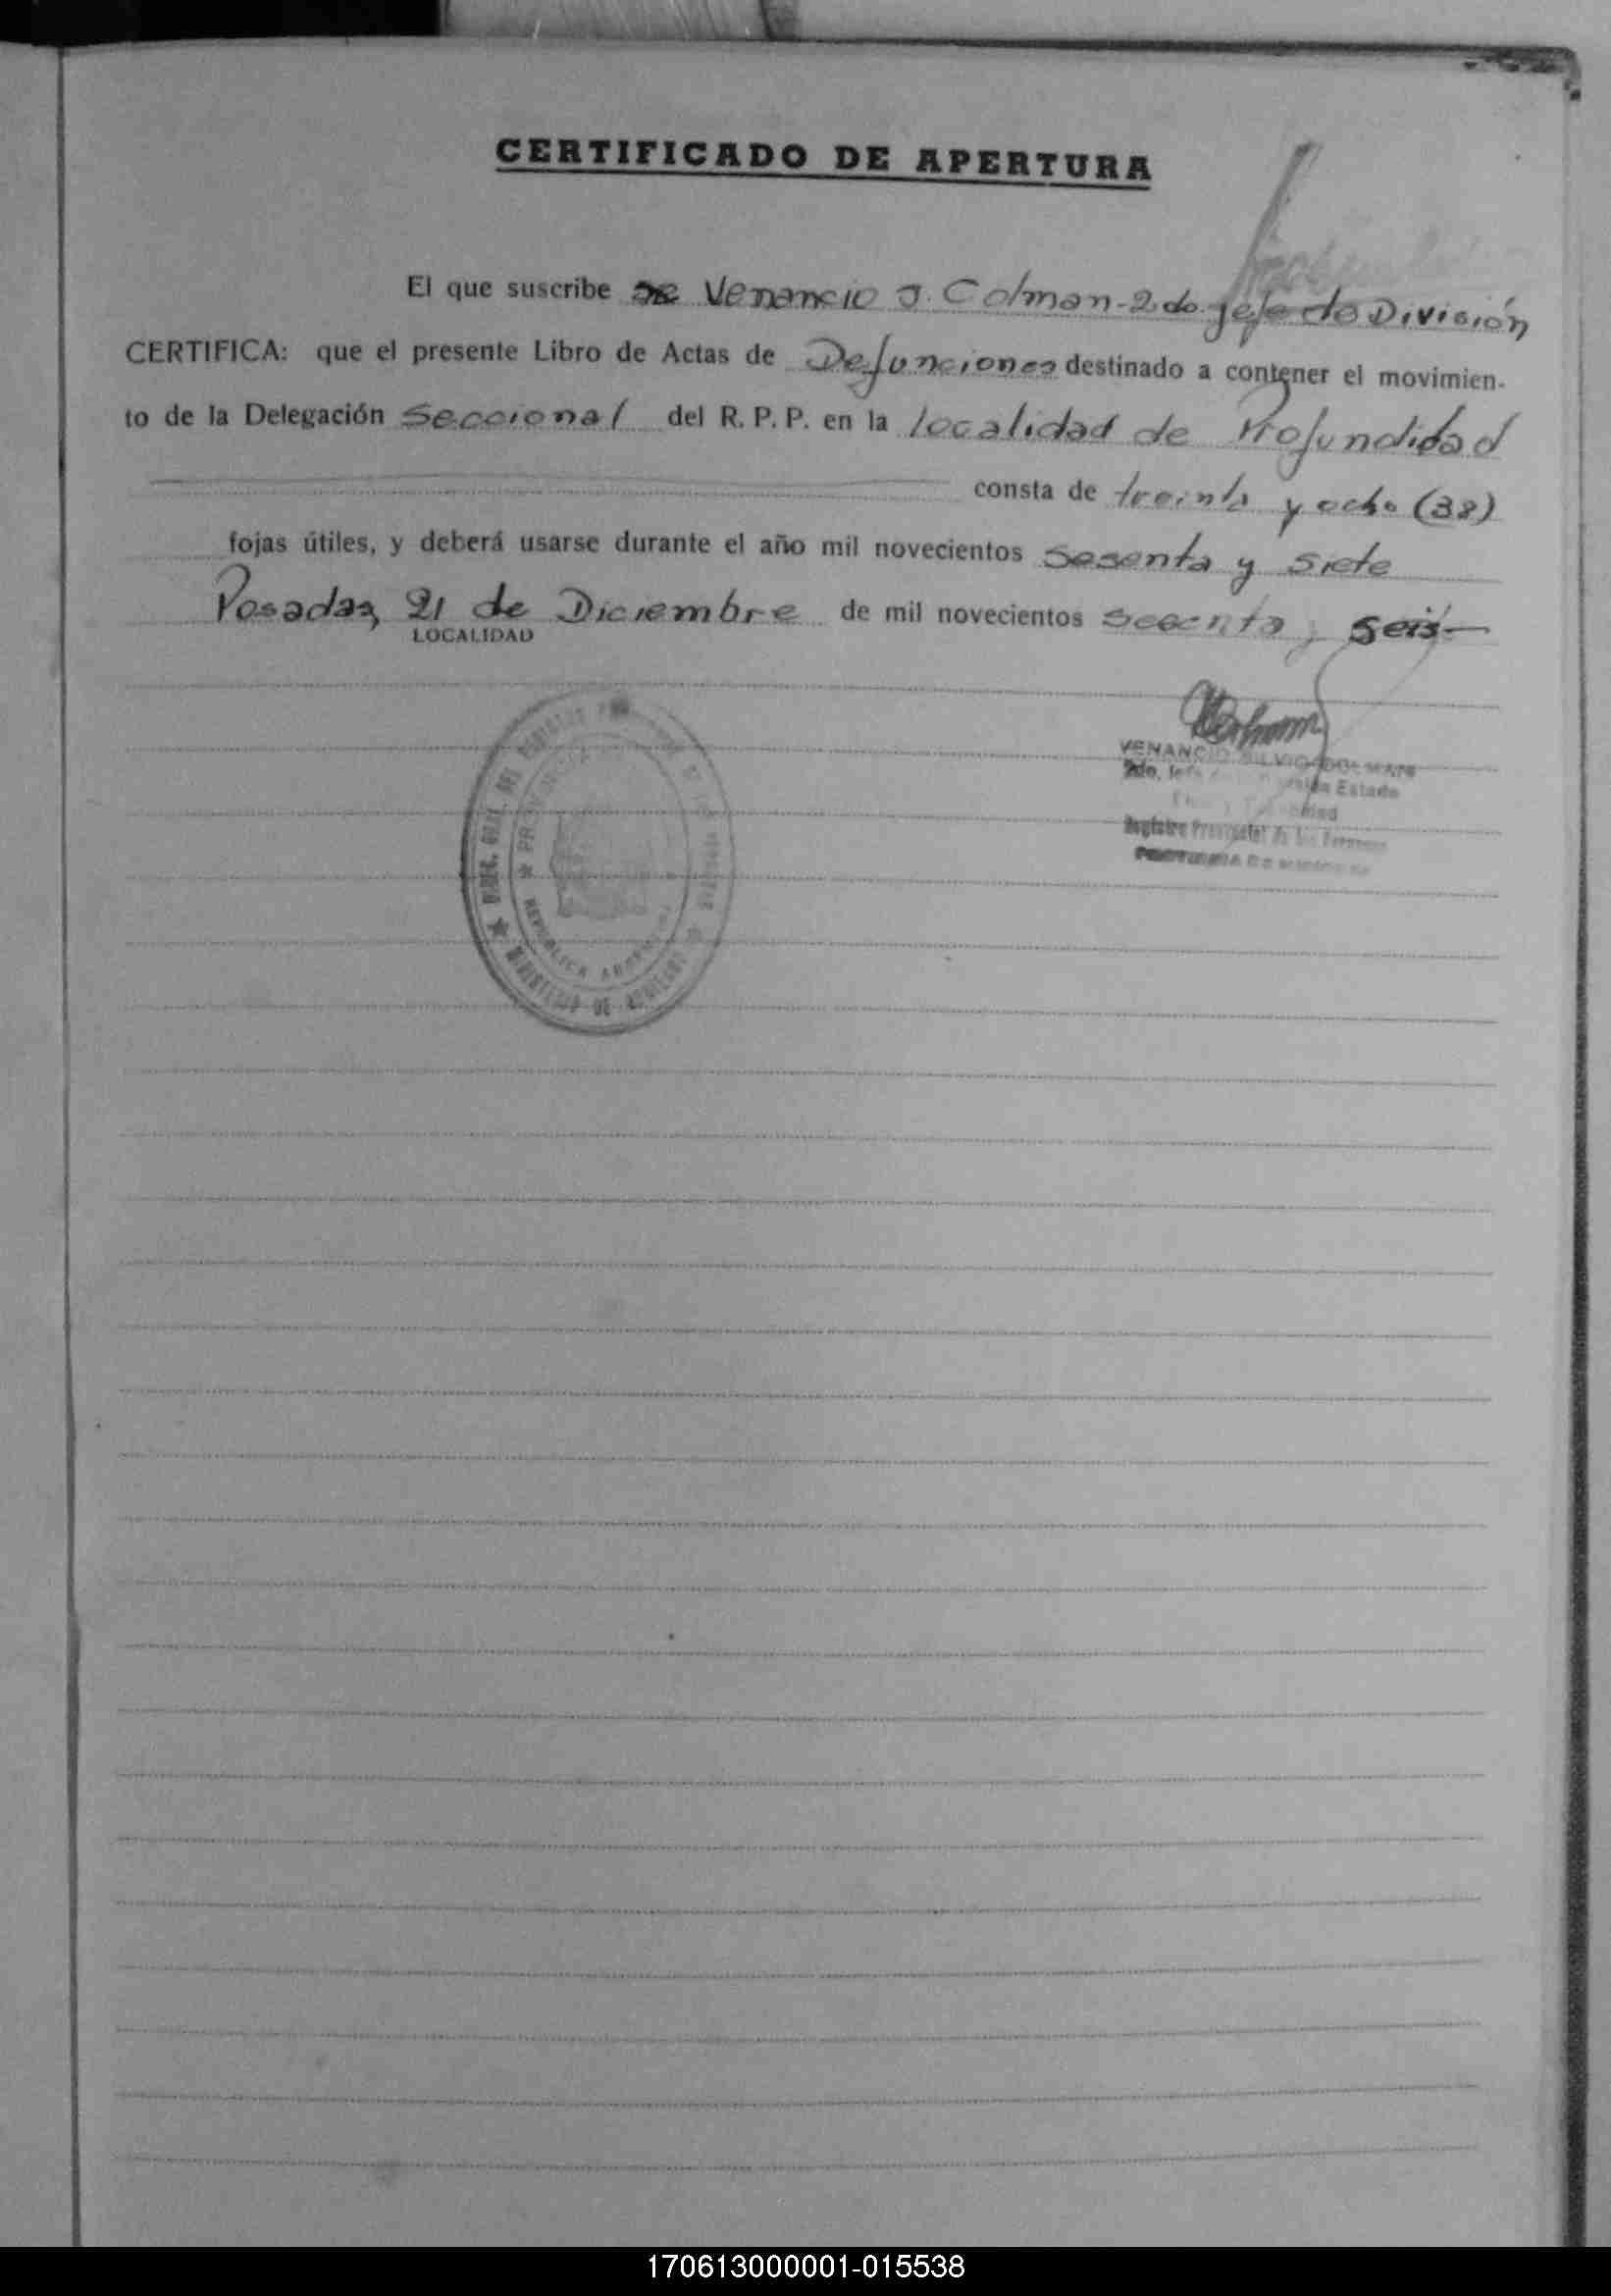 CERTIFICADO DE APERTURA
El que suscribe Venancio J. Colman - 2do. jefe de División
CERTIFICA: que el presente Libro de Actas de Defunciones destinado a contener el movimien-
to de la Delegación Seccional del R. P. P. en la localidad de Profundidad
consta de treinta y ocho (38)
fojas útiles, y deberá usarse durante el año mil novecientos Sesenta y Siete
Posadas, 21 de Diciembre de mil novecientos Sesenta y Seis
LOCALIDAD
VENANCIO SILVIO COLMAN
2do. Jefe Estado
Registro Provincial de las Personas
PROVINCIA DE MISIONES
★ DIREC. GRAL. DEL REGISTRO
★ MINISTERIO DE GOBIERNO
★ PROVINCIA
REPUBLICA ARGENTINA
170613000001-015538